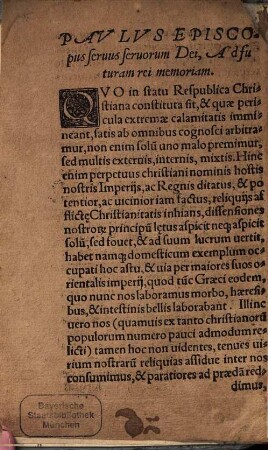 PAVLVS EPISCO-
pus seruus seruorum Dei, Ad fu
turam rei memoriam.
QVO in statu Respublica Chri
stiana constituta sit, & quæ peri
cula extremæ calamitatis immi
neant, satis ab omnibus cognosci arbitra
mur, non enim solũ uno malo premimur,
sed multis externis, internis, mixtis. Hinc
enim perpetuus christiani nominis hostis
nostris Imperijs, ac Regnis ditatus, & po
tentior, ac uicinior iam factus, reliquijs af
flictę Christianitatis inhians, dissensiones
nostrorũ principũ lętus aspicit neq; aspicit
solũ, sed fouet, & ad suum lucrum uertit,
habet namq; domesticum exemplum oc
cupati hoc astu, & uia per maiores suos o
rientalis imperij, quod tũc Græci eodem,
quo nunc nos laboramus morbo, hæresi
bus, & intestinis bellis laborabant. Illinc
uero nos (quamuis ex tanto christianorũ
populorum numero pauci admodum re
licti) tamen hoc non uidentes, tenues ui
rium nostrarũ reliquias assidue inter nos
consumimus, & paratiores ad prædã red
dimus,
Bayerische
Staatsbibliothek
München